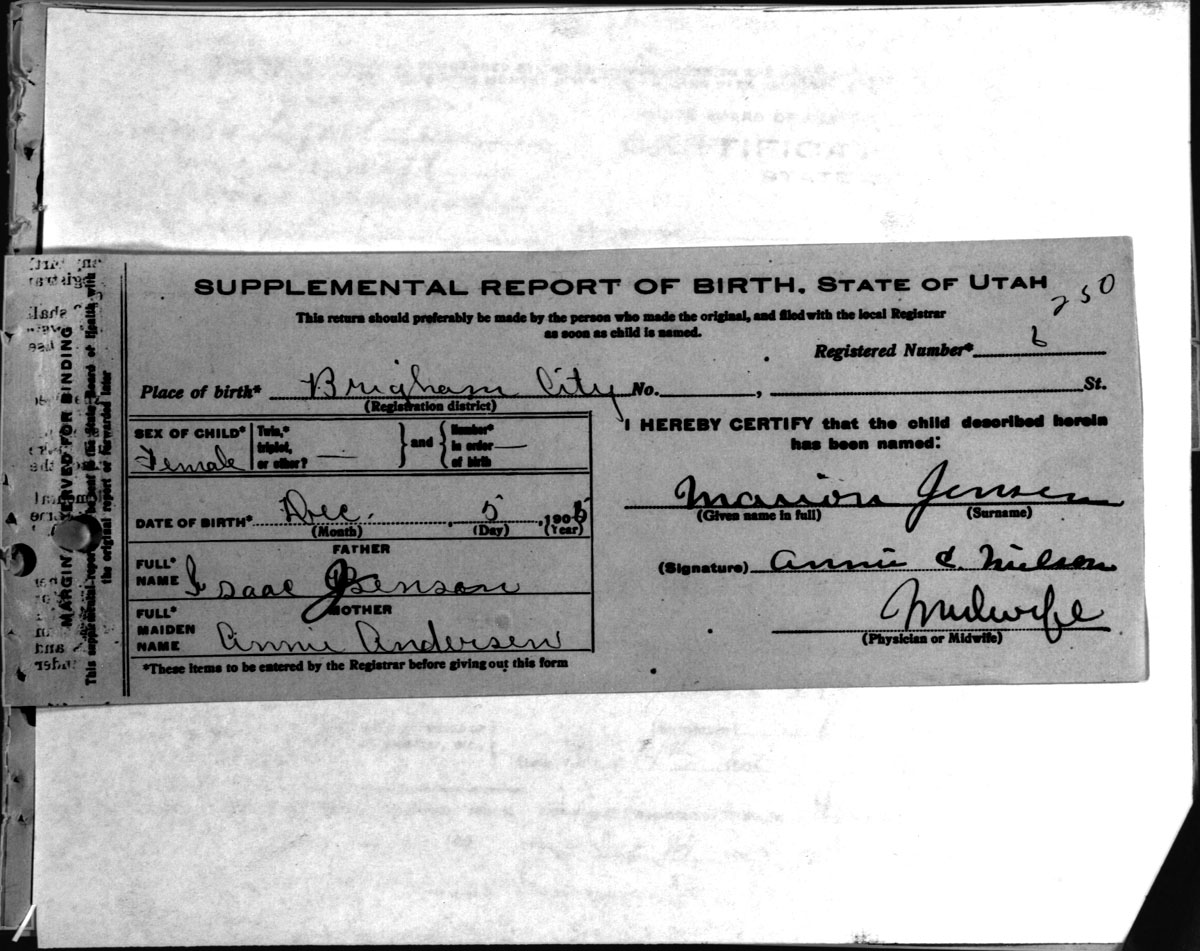 SUPPLEMENTAL REPORT OF BIRTH. STATE OF UTAH
250
This return should preferably be made by the person who made the original, and filed with the local Registrar
as soon as child is named.
Registered Number* 6
Place of birth* Brigham City No. , St.
(Registration district)
SEX OF CHILD* Female
Twin,* triplet, or other? —
and
Number* in order of birth —
DATE OF BIRTH* Dec. 5, 190
(Month) (Day) (Year)
FATHER
FULL* NAME Isaac Jensen
MOTHER
FULL* MAIDEN NAME Annie Andersen
*These items to be entered by the Registrar before giving out this form
I HEREBY CERTIFY that the child described herein
has been named:
Marion Jensen
(Given name in full) (Surname)
(Signature) Annie C. Nielson
Midwife
(Physician or Midwife)
MARGIN RESERVED FOR BINDING
This supplemental report to be sent to the State Board of Health with
the original report or forwarded later